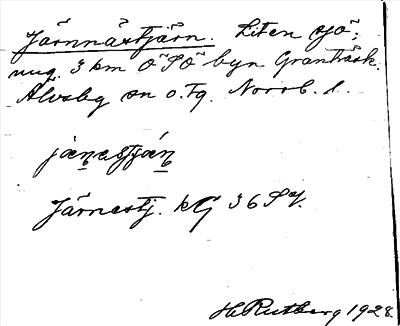 Järnnästjärn. Liten sjö;
nug. 3 km ÖSÖ byn Granträsk.
Älvsby sn o. tg. Norrb. l.
Järnestj. kG 36 SV.
H. Rutberg 1928.